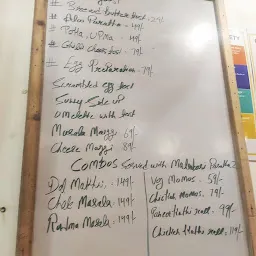 # Bread Butter Toast - 29/-
# Aloo Paratha - 49/-
# Poha, Upma - 49/-
# Chilli Cheese Toast - 79/-
# Egg Preparation - 79/-
Scrambled egg toast
Sunny Side up
Omelette with toast
Masala Maggi 69/-
Cheese Maggi 89/-
Combos Served with Malabari Paratha 2
Dal Makhni - 149/-
Chole Masala - 149/-
Rajma Masala - 149/-
Veg Momos - 59/-
Chicken Momos - 79/-
Paneer Kathi roll - 99/-
Chicken Kathi roll - 119/-